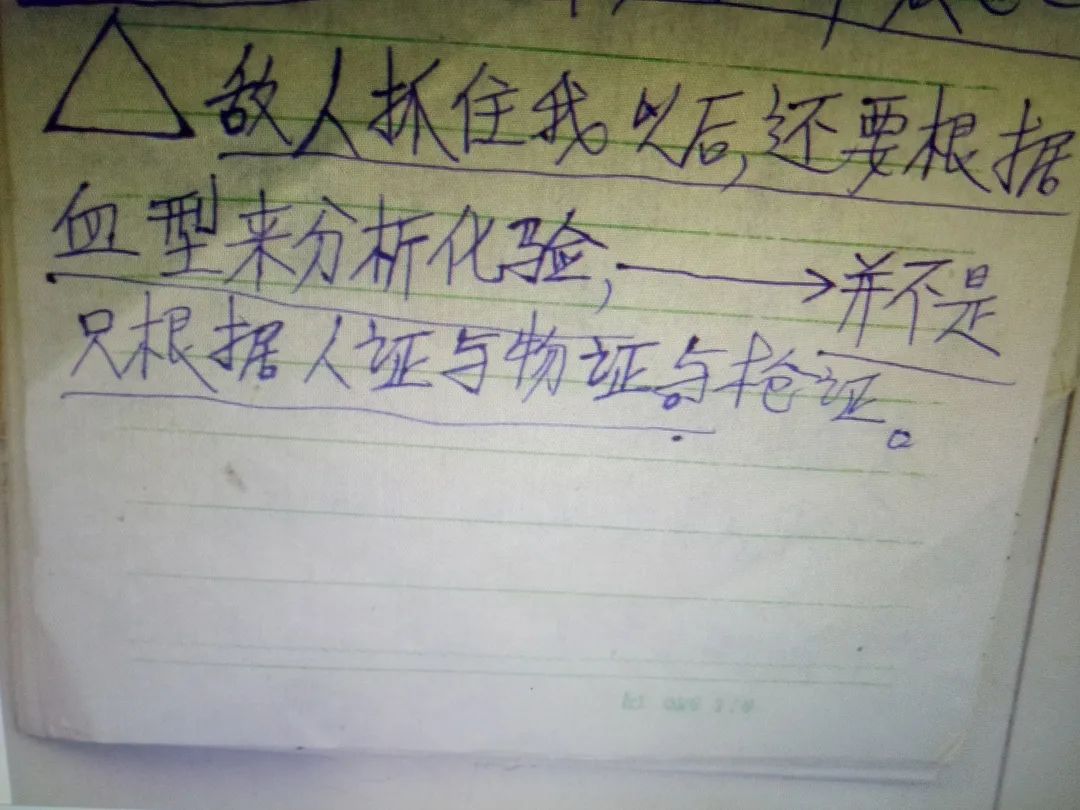 △敌人抓住我以后,还要根据
血型来分析化验,→并不是
只根据人证与物证。与枪证。